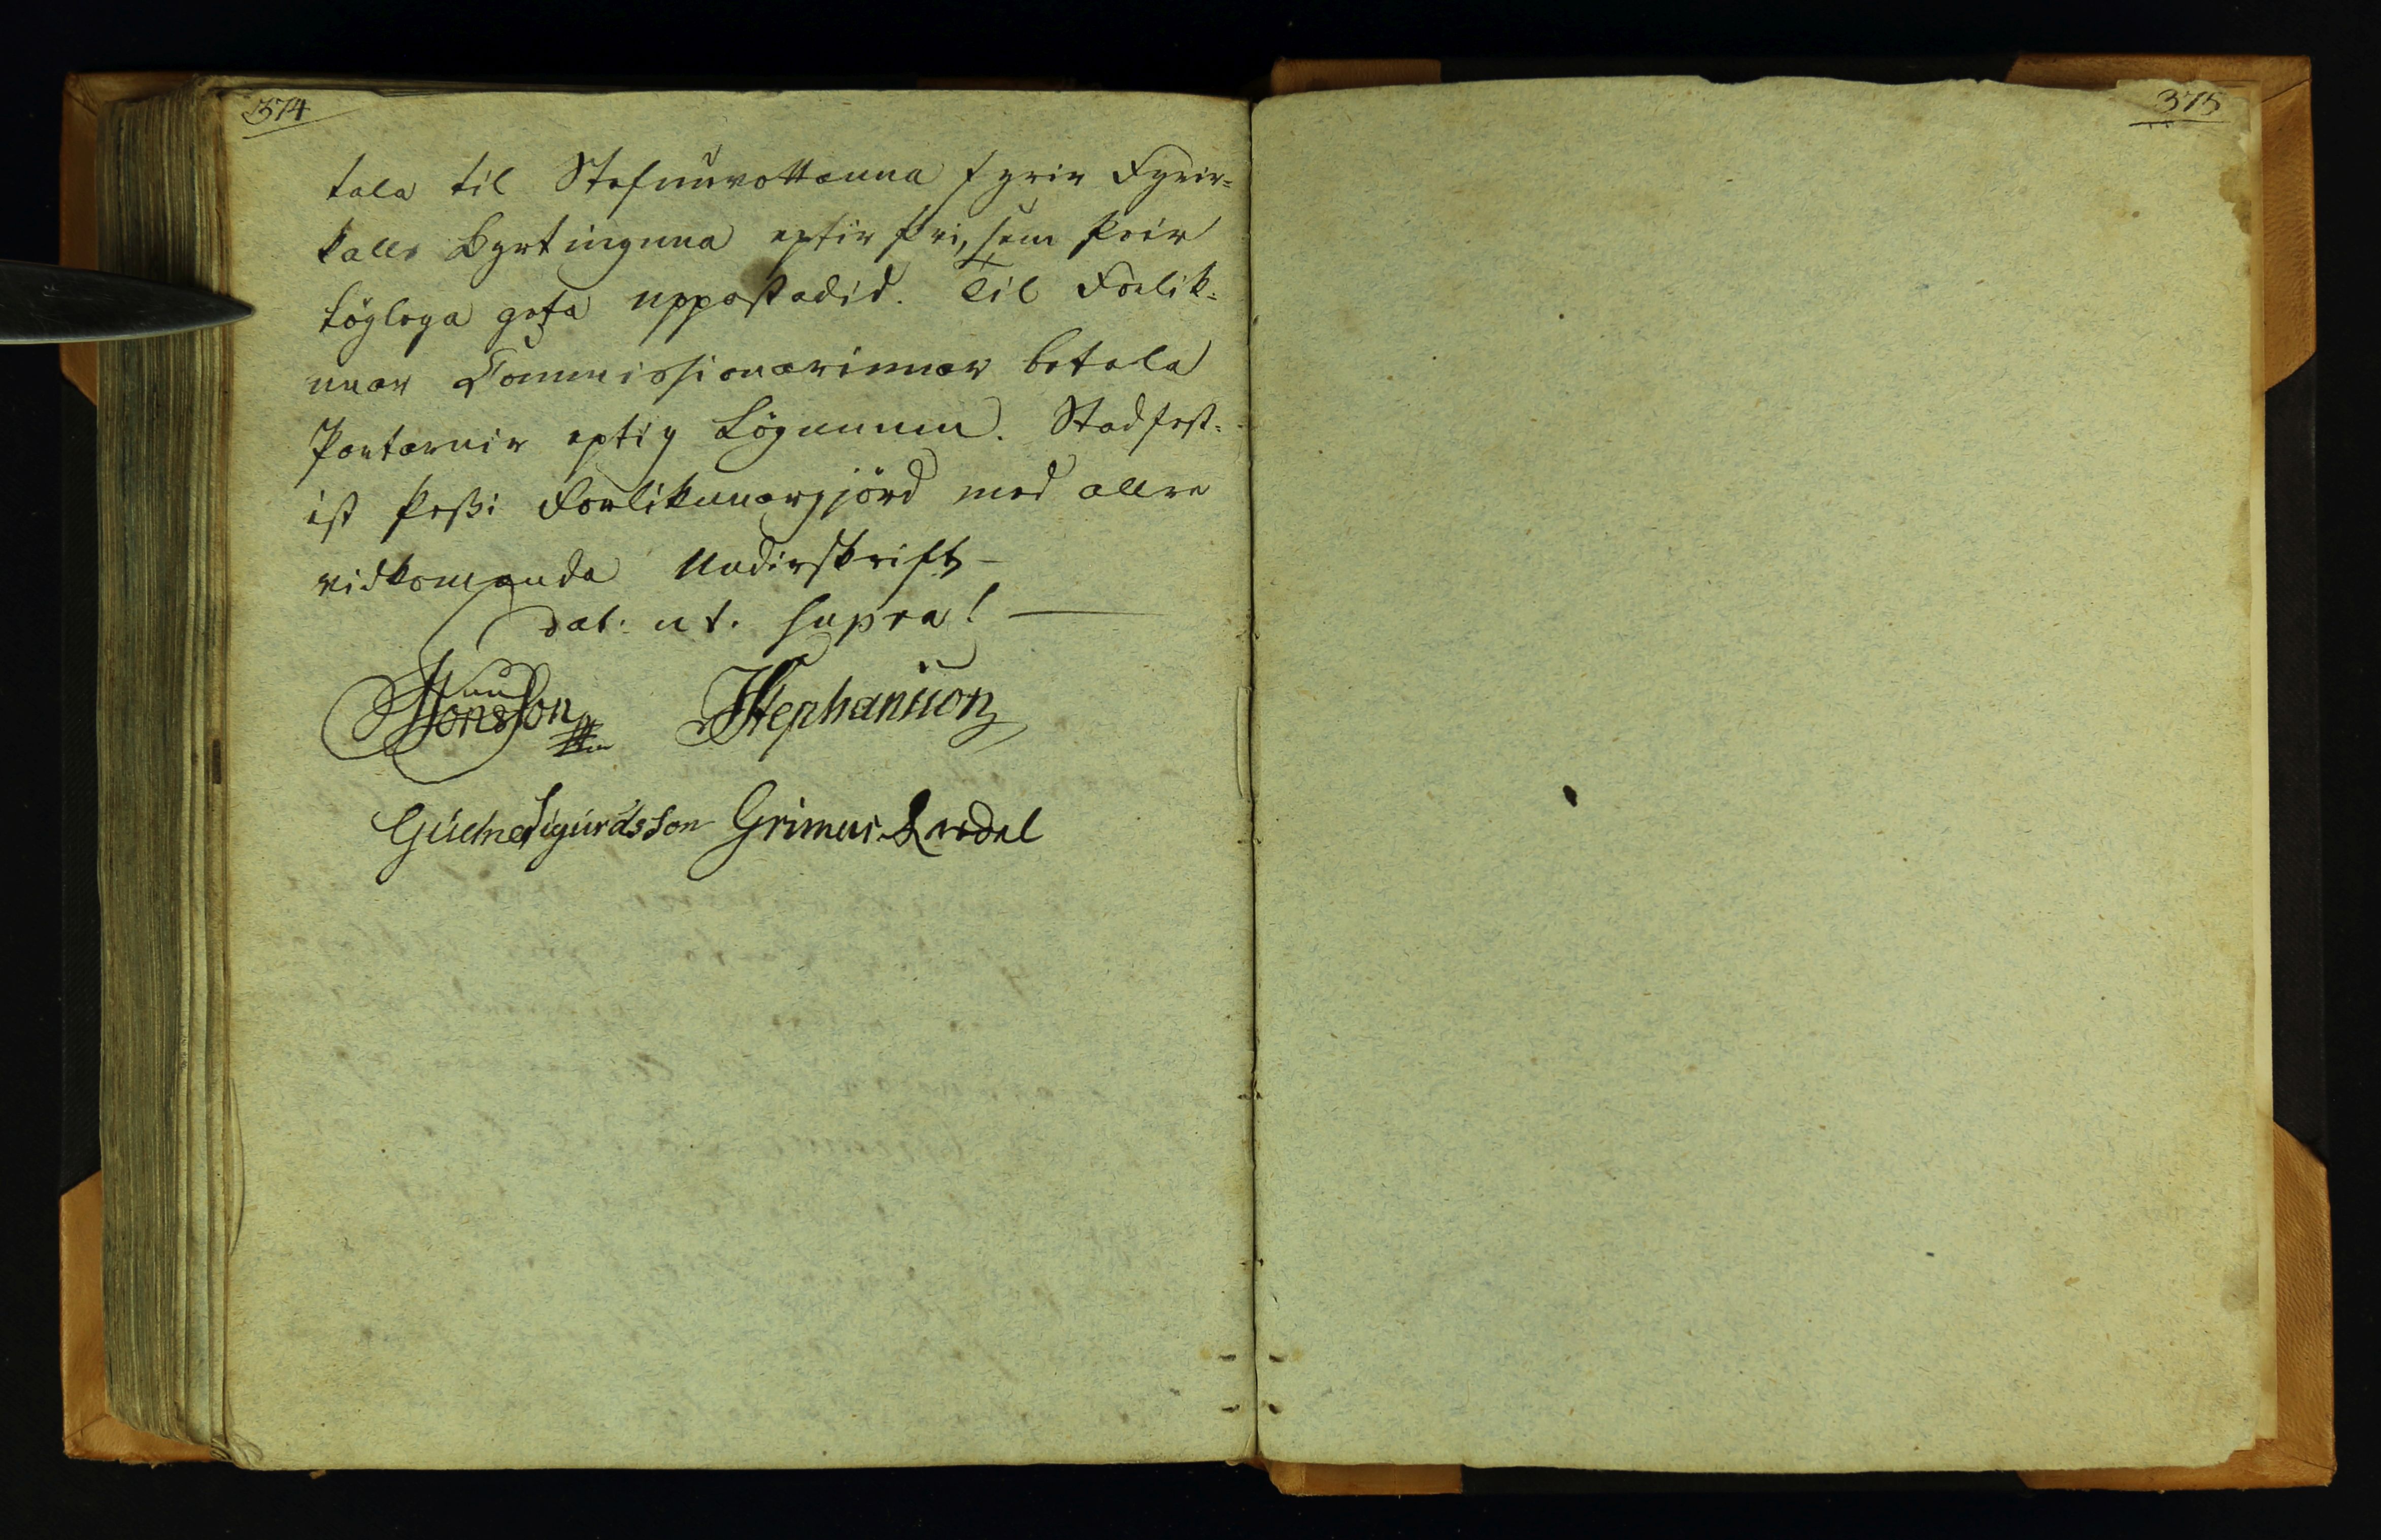 374
375
tala til Stefnuvottanna fyrir Fyrir=
kalls Byrtinguna eptir þvi, sem þeir
löglega geta uppástadid. Til Forlik=
unar Commissionarinnar betala
Partarnir eptir Lögunum. Stadfest=
ist þessi Forlikunargjörd med allra
vidkomanda Undirskrift –
dat: ut. supra! —
Jonsson Stephanson
Sigurdsson Grimur Laxdal